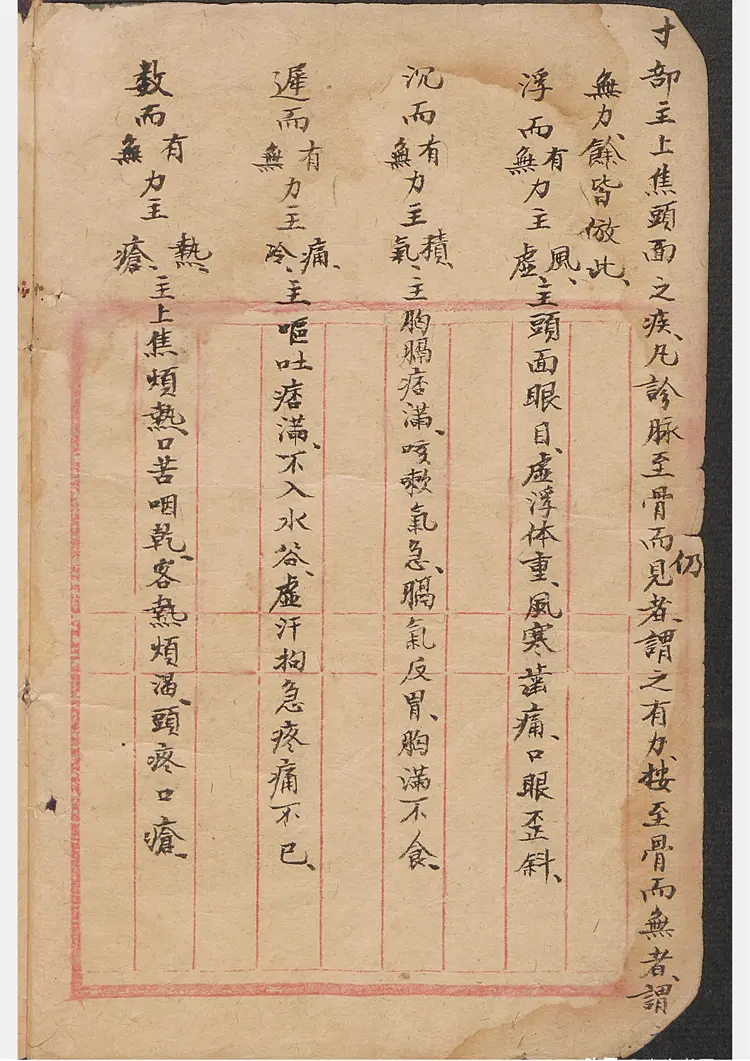 寸部主上焦頭面之疾、凡診脉至骨而仍見者、謂之有力、按至骨而無者、謂
無力、餘皆倣此、
浮而有無力主風虛、主頭面眼目、虛浮体重、風寒齒痛、口眼歪斜、
沉而有無力主積氣、主胸膈痞滿、咳嗽氣急、膈氣反胃、胸滿不食、
遲而有無力主痛冷、主嘔吐痞滿、不入水谷、虛汗拘急疼痛不已、
数而有無力主熱瘡、主上焦煩熱、口苦咽乾、客熱煩滿、頭疼口瘡、